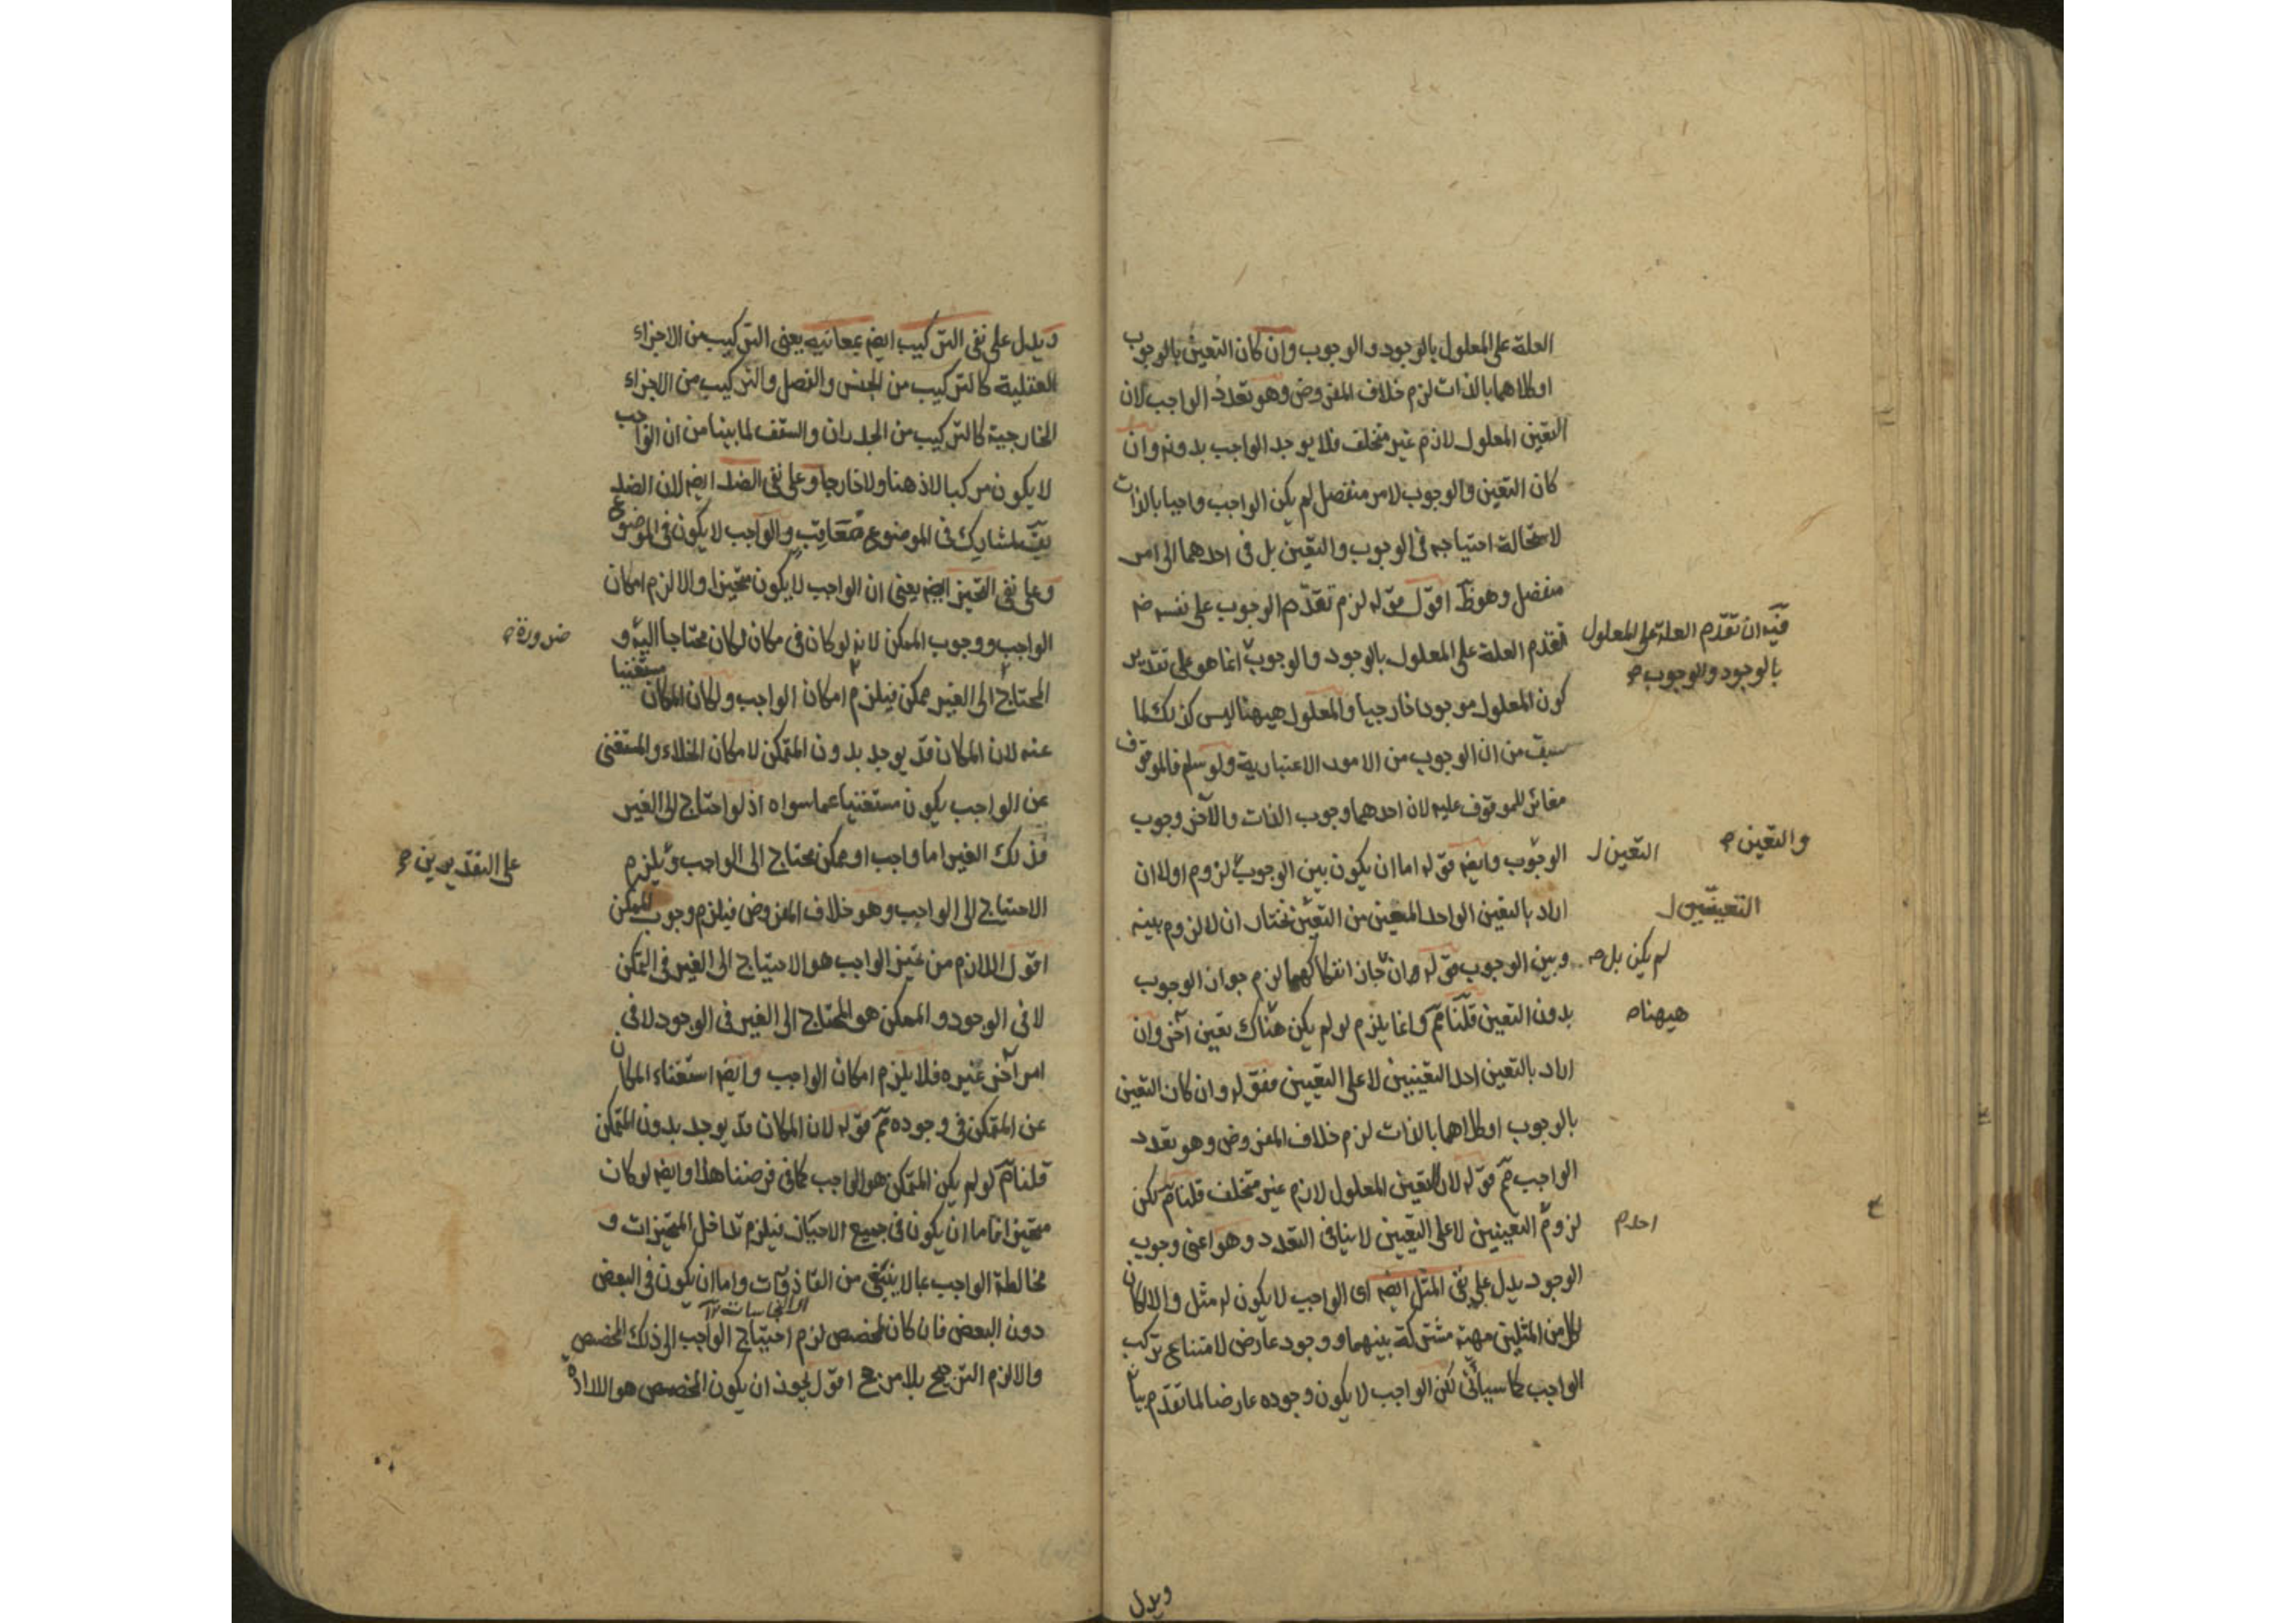 العلة على المعلول بالوجود والوجوب وان كان التعين بالوجوب
او كلاهما بالذات لزم خلاف المفروض وهو تعدد الواجب لان
التعين المعلول لازم غير متخلف فلا يوجد الواجب بدونه وان
كان التعين والوجوب لامر منفصل لم يكن الواجب واجبا بالذات
لاستحالة احتياجه فى الوجوب والتعين بل فى احدهما الى امر
منفصل وهو ظ اقول قوله لزم تقدم الوجوب على نفسه
فيه ان تقدم العلة على المعلول
بالوجود والوجوب صح
تقدم العلة على المعلول بالوجود والوجوب انما هو على تقدير
كون المعلول موجودا خارجيا والمعلول هيهنا ليس كذلك لما
سبق من ان الوجوب من الامور الاعتبارية ولو سلم فالموقوف
مغائر للموقوف عليه لان احدهما وجوب الذات والآخر وجوب
والتعين صح
التعين ل
الوجوب وايضه قوله اما ان يكون بين الوجوب لزوم اولا ان
التعينين ل
اراد بالتعين الواحد المعين من التعين نختار ان لا لزوم بينه
لم يكن بل صح
وبين الوجوب قوله وان جاز انفكاكهما لزم جواز الوجوب
هيهنا صح
بدون التعين قلنا مم وانما يلزم لو لم يكن هناك تعين آخر وان
اراد بالتعين احد التعينين لا على التعيين فقوله وان كان التعين
بالوجوب او كلاهما بالذات لزم خلاف المفروض وهو تعدد
الواجب مم قوله لان التعين المعلول لازم غير متخلف قلنا مم لكن
احد م
لزوم التعينين لا على التعيين لا ينافى التعدد وهو اعنى وجوب
الوجود يدل على نفى المثل ايضه اى الواجب لا يكون له مثل والا لكان
لكل من المثلين مهية مشتركة بينهما ووجود عارض لامتناع تركب
الواجب كما سيأتى لكن الواجب لا يكون وجوده عارضا لما تقدم بيانه
ويدل
ويدل على نفى التركيب ايضه بمعانيه يعنى التركيب من الاجزاء
العقلية كالتركيب من الجنس والفصل والتركيب من الاجزاء
الخارجية كالتركيب من الجدران والسقف لما بينا من ان الواجب
لا يكون مركبا لا ذهنا ولا خارجا وعلى نفى الضد ايضه لان الضد
يق لمشارك فى الموضوع معاقب والواجب لا يكون فى الموضوع
وعلى نفى التحيز ايضه يعنى ان الواجب لا يكون متحيزا والا لزم امكان
ضرورة صح
الواجب ووجوب الممكن لانه لو كان فى مكان لكان محتاجا اليه و
المحتاج الى الغير ممكن فيلزم امكان الواجب ولكان المكان مستغنيا
عنه لان المكان قد يوجد بدون المتمكن لامكان الخلاء والمستغنى
عن الواجب يكون مستغنيا عما سواه اذ لو احتاج الى الغير
على التقديرين صح
فذلك الغير اما واجب او ممكن محتاج الى الواجب ويلزم
الاحتياج الى الواجب وهو خلاف المفروض فيلزم وجوب الممكن
اقول اللازم من تحيز الواجب هو الاحتياج الى الغير فى التمكن
لا فى الوجود والممكن هو المحتاج الى الغير فى الوجود لا فى
امر آخر غيره فلا يلزم امكان الواجب وايضه استغناء المكان
عن المتمكن فى وجوده مم قوله لان المكان قد يوجد بدون المتمكن
قلنا مم لو لم يكن المتمكن هو الواجب كما فى فرضنا هذا وايضه لو كان
متحيزا فاما ان يكون فى جميع الاحياز فيلزم تداخل المتحيزات و
مخالطة الواجب بما لا ينبغى من القاذورات واما ان يكون فى البعض
النجاسات
دون البعض فان كان لمخصص لزم احتياج الواجب الى ذلك المخصص
والا لزم الترجيح بلا مرجح اقول يجوز ان يكون المخصص هو الارادة